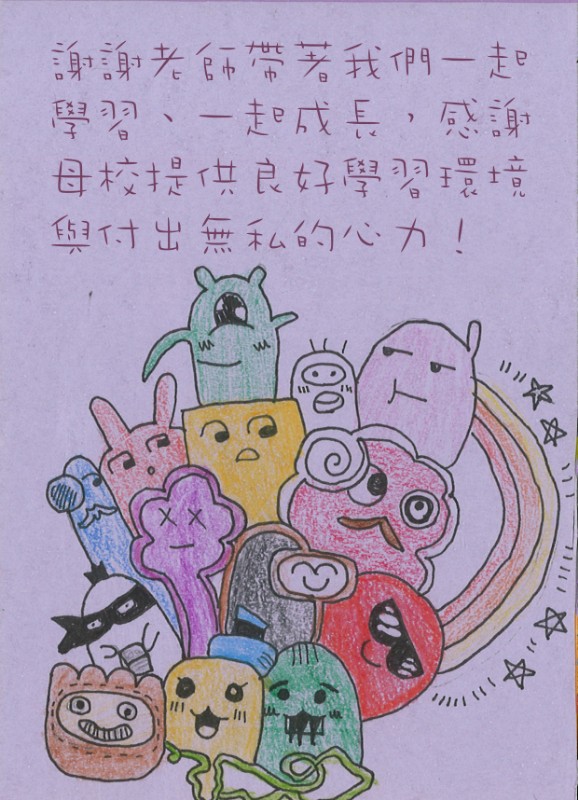 謝謝老師帶著我們一起
學習、一起成長，感謝
母校提供良好學習環境
與付出無私的心力！